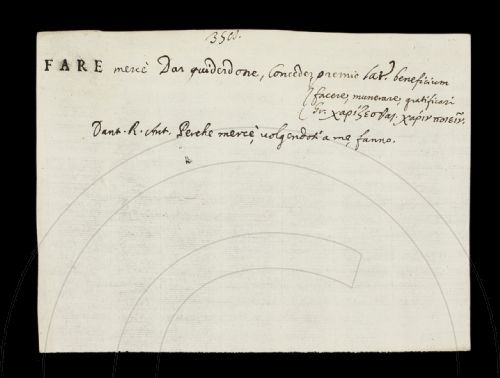 3500.
FARE mercè Dar guiderdone, Conceder premio Lat. beneficium
facere, munerare, gratificari
Gr. χαρίζεσθαι, χάριν ποιεῖν.
Dant. R. Ant. Perche mercè, volgendosi a me, fanno.